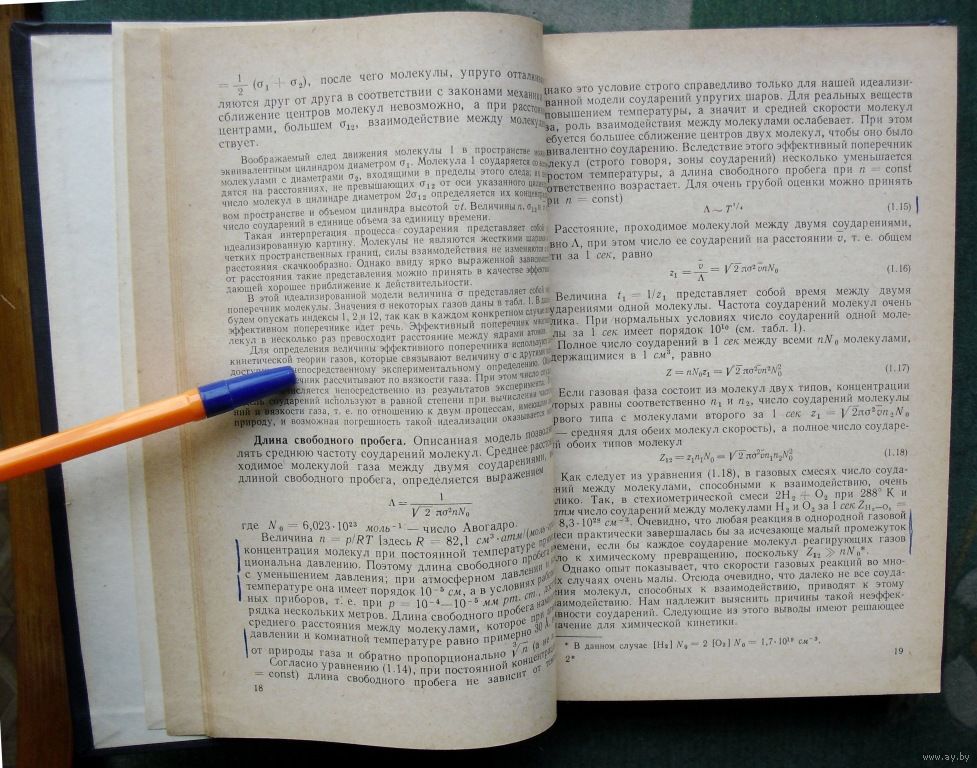 = 1/2 (σ₁ + σ₂), после чего молекулы, упруго
ляются друг от друга в соответствии с законами
сближение центров молекул невозможно, а при
центрами, большем σ₁₂, взаимодействие между
ствует.
Воображаемый след движения молекулы 1 в пространстве
эквивалентным цилиндром диаметром σ₁. Молекула 1 соударяется со
молекулами с диаметрами σ₂, входящими в пределы этого следа;
дятся на расстояниях, не превышающих σ₁₂ от оси указанного
число молекул в цилиндре диаметром 2σ₁₂ определяется их
вом пространстве и объемом цилиндра высотой v̄t. Величины n, σ₁₂
число соударений в единице объема за единицу времени.
Такая интерпретация процесса соударения представляет собой
идеализированную картину. Молекулы не являются жесткими
четких пространственных границ, силы взаимодействия не изменяются с
расстояния скачкообразно. Однако ввиду ярко выраженной
от расстояния такие представления можно принять в качестве
дающей хорошее приближение к действительности.
В этой идеализированной модели величина σ представляет собой
поперечник молекулы. Значения σ некоторых газов даны в табл. 1. В
будем опускать индексы 1, 2 и 12, так как в каждом конкретном случае
эффективном поперечнике идет речь. Эффективный поперечник
лекул в несколько раз превосходит расстояние между ядрами
Для определения величины эффективного поперечника используют
кинетической теории газов, которые связывают величину σ с другими
непосредственному экспериментальному определению.
рассчитывают по вязкости газа. При этом число
непосредственно из результатов эксперимента.
соударений используют в равной степени при вычислении
ний и вязкости газа, т. е. по отношению к двум процессам,
природу, и возможная погрешность такой идеализации оказывается
Длина свободного пробега. Описанная модель
лять среднюю частоту соударений молекул. Среднее
ходимое молекулой газа между двумя соударениями,
длиной свободного пробега, определяется выражением
Λ = 1/(√2 πσ²nN₀)
где N₀ = 6,023·10²³ моль⁻¹ — число Авогадро.
Величина n = p/RT [здесь R = 82,1 см³·атм/
концентрация молекул при постоянной температуре
циональна давлению. Поэтому длина свободного пробега
с уменьшением давления; при атмосферном давлении и
температуре она имеет порядок 10⁻⁵ см, а в условиях
ных приборов, т. е. при p = 10⁻⁴—10⁻⁵ мм рт. ст.,
рядка нескольких метров. Длина свободного пробега
среднего расстояния между молекулами, которое при
давлении и комнатной температуре равно примерно 30 Å,
от природы газа и обратно пропорционально ∛n (а не
Согласно уравнению (1.14), при постоянной
= const) длина свободного пробега не зависит от
18
это условие строго справедливо только для нашей идеализи-
ванной модели соударений упругих шаров. Для реальных веществ
повышением температуры, а значит и средней скорости молекул
за, роль взаимодействия между молекулами ослабевает. При этом
ебуется большее сближение центров двух молекул, чтобы оно было
вивалентно соударению. Вследствие этого эффективный поперечник
лекул (строго говоря, зоны соударений) несколько уменьшается
ростом температуры, а длина свободного пробега при n = const
ответственно возрастает. Для очень грубой оценки можно принять
ри n = const)
(1.15)
Расстояние, проходимое молекулой между двумя соударениями,
вно Λ, при этом число ее соударений на расстоянии v̄, т. е. общем
ти за 1 сек, равно
z₁ = v̄/Λ = √2 πσ²v̄nN₀ (1.16)
Величина t₁ = 1/z₁ представляет собой время между двумя
ударениями одной молекулы. Частота соударений молекул очень
лика. При нормальных условиях число соударений одной моле-
лы за 1 сек имеет порядок 10¹⁰ (см. табл. 1).
Полное число соударений в 1 сек между всеми nN₀ молекулами,
держащимися в 1 см³, равно
Z = nN₀z₁ = √2 πσ²v̄n²N₀² (1.17)
Если газовая фаза состоит из молекул двух типов, концентрации
оторых равны соответственно n₁ и n₂, число соударений молекулы
рвого типа с молекулами второго за 1 сек z₁ = √2πσ²v̄n₂N₀
— средняя для обеих молекул скорость), а полное число соударе-
й обоих типов молекул
Z₁₂ = z₁n₁N₀ = √2 πσ²v̄n₁n₂N₀² (1.18)
Как следует из уравнения (1.18), в газовых смесях число соуда-
ений между молекулами, способными к взаимодействию, очень
лико. Так, в стехиометрической смеси 2H₂ + O₂ при 288° К и
атм число соударений между молекулами H₂ и O₂ за 1 сек Z_H₂–O₂ =
8,3·10²⁸ см⁻³. Очевидно, что любая реакция в однородной газовой
еси практически завершалась бы за исчезающе малый промежуток
емени, если бы каждое соударение молекул реагирующих газов
ло к химическому превращению, поскольку Z₁₂ ≫ nN₀*.
Однако опыт показывает, что скорости газовых реакций во мно-
х случаях очень малы. Отсюда очевидно, что далеко не все соуда-
ния молекул, способных к взаимодействию, приводят к этому
аимодействию. Нам надлежит выяснить причины такой неэффек-
вности соударений. Следующие из этого выводы имеют решающее
ачение для химической кинетики.
* В данном случае [H₂] N₀ = 2 [O₂] N₀ = 1,7·10¹⁹ см⁻³.
2*
19
www.ay.by